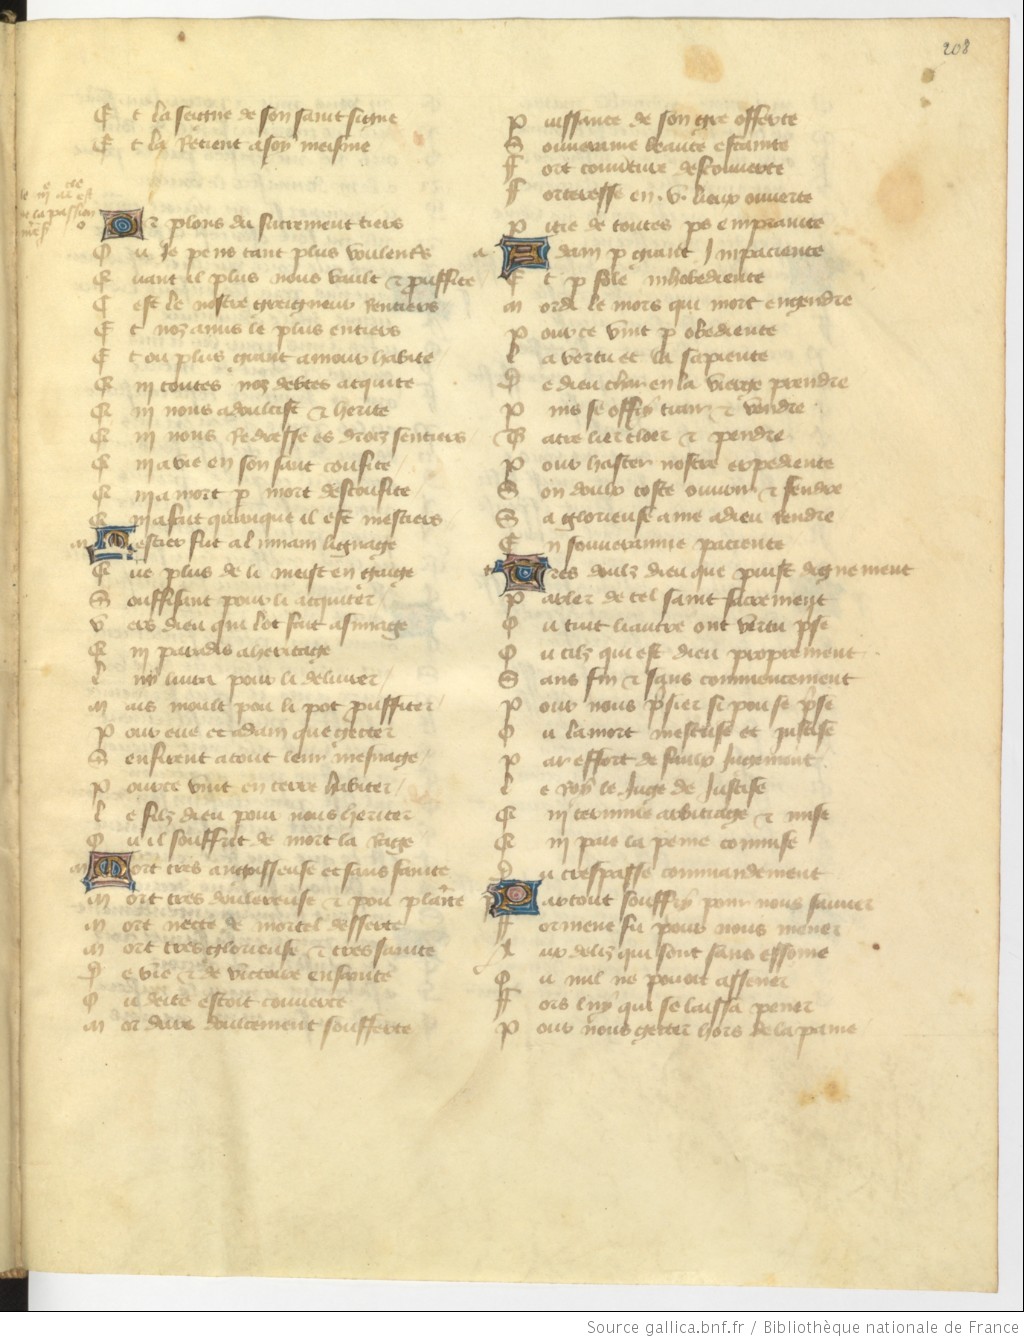 208
Et la seigne de son saint signe
Et la Retient a son meisme
Or plons du sacrement tiers
Ou Je pens tant plus voulentiers
Quant il plus nous vault & puffite
Cest le nostre greigneur Rentiers
Et noz amis le plus entiers
Et ou plus grant amour habite
Qui toutes noz debtes acquite
Qui nous adoulcist & herite
Qui nous Redresse es droiz sentiers
Qui a vie en son sanc confite
Qui a mort p mort desconfite
Qui a fait quanque il est mestiers
Mestier fut a lumain lignage
Que plus de li meist en gaige
Souffisant pour li acquiter
vers dieu qui lot fait a s ymage
Qui paradis a heritage
Luy livra pour li deliurer
Mais moult pou li pot pruffiter
Pour eue et adam que gecter
Sen firent a tout leur mesnage
Pour ce vint en terre habiter
Le filz dieu pour nous heriter
Ou il souffrit de mort la Rage
Mort tres angoisseuse et sans fainte
Mort tres doulereuse & pou plainte
Mort necte de mortel desserte
Mort tres glorieuse & tres sainte
De vie & de victoire ensainte
Ou deite estoit couuerte
Mort dure doulcement soufferte
Puissance de son gre offerte
Souueraine beaute estainte
Fort couuerture descouuerte
Forteresse en .v. lieux ouuerte
Pitie de toutes ps emprainte
Adam p grant Impacience
Et p sole inhobedience
Mordi le mors qui mort engendre
Pour ce vint p obedience
La vertu et la sapience
De dieu char en la vierge prendre
Puis se offry trair & vendre
Batre lier cloer & pendre
Pour haster nostre expedience
Son doulx coste ouurir & fendre
Sa glorieuse ame a dieu Rendre
En souueraine pacience
Tres doulz dieu que puist dignement
Parler de cel saint sacrement
Ou tuit li autre ont vertu pse
Ou cilz qui est dieu proprement
Sans fin & sans commencement
Pour nous psier si pou se pse
Ou la mort mescuse et Justise
Par effort de faulx Jugement
Le Roy le Juge de Justise
Qui termine arbitrage & mise
Qui paie la peine commise
Du trespasse commandement
Partout souffry pour nous sauuer
Forment fu pour nous mener
Aux deliz qui sont sans essoine
Ou nul ne pouoit assener
Fors luy qui se laissa pener
Pour nous gecter hors de la paine